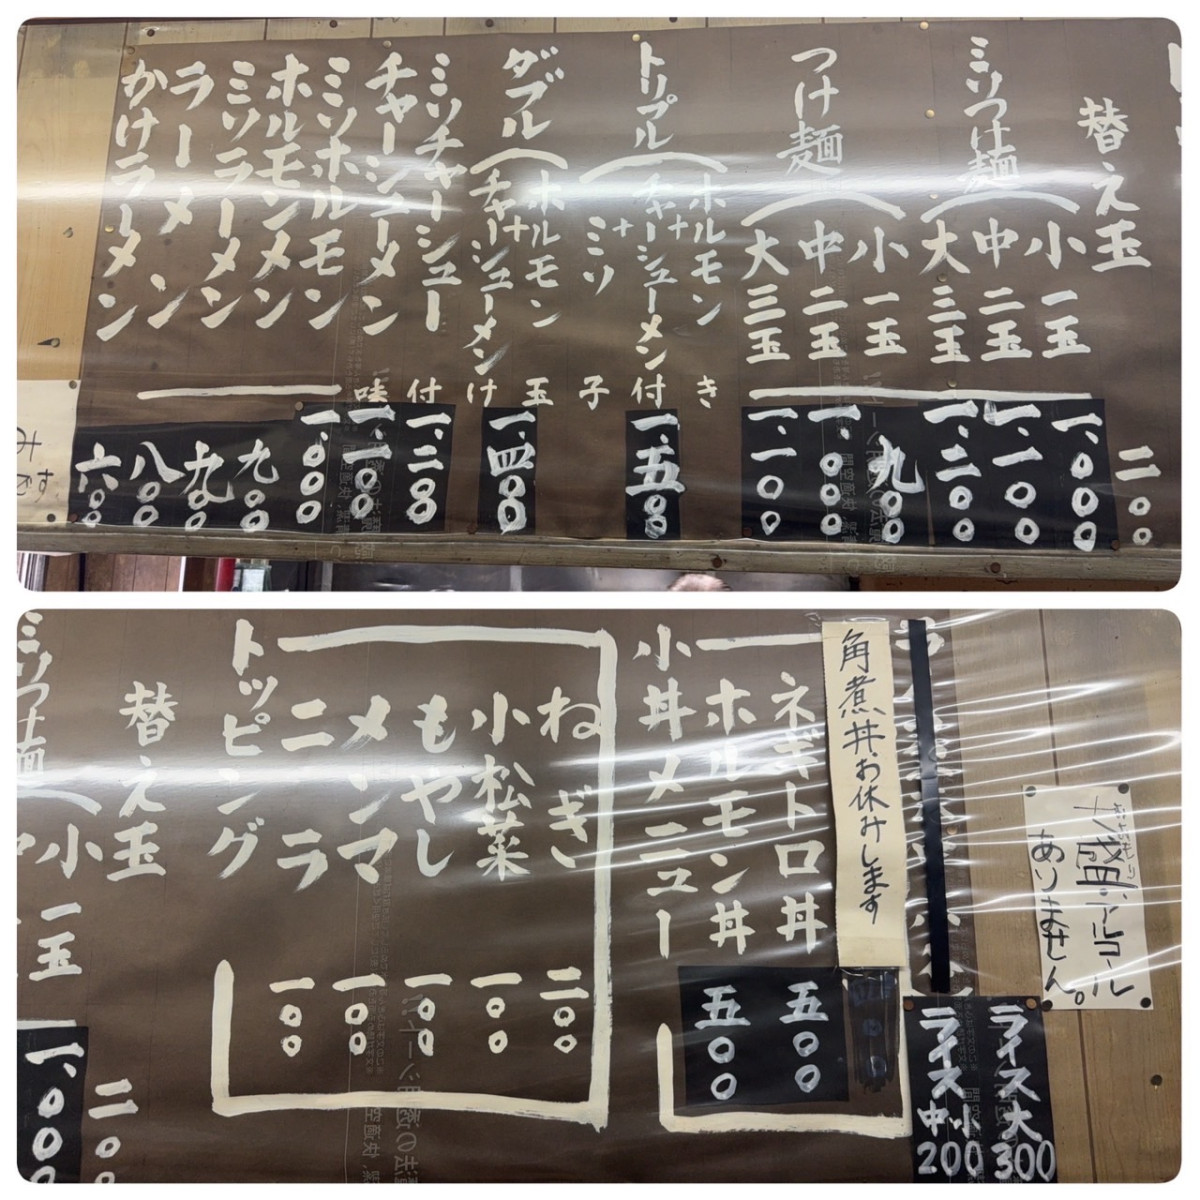 かけラーメン 六〇〇
ラーメン 八〇〇
ミソラーメン 九〇〇
ホルモンメン 九〇〇
ミソホルモン 一、〇〇〇
チャーシューメン 一、一〇〇
ミソチャーシュー 一、二〇〇
ダブル(ホルモン
+チャーシューメン 一、四〇〇
トリプル(ホルモン
+チャーシューメン
+ミソ 一、五〇〇
味付け玉子付き
つけ麺
大 三玉 一、一〇〇
中 二玉 一、〇〇〇
小 一玉 九〇〇
ミソつけ麺
大 三玉 一、二〇〇
中 二玉 一、一〇〇
小 一玉 一、〇〇〇
替え玉 二〇〇
ミソつけ麺
中
小 一玉 一、〇〇〇
替え玉 二〇〇
トッピング
ニラ 一〇〇
メンマ 一〇〇
もやし 一〇〇
小松菜 一〇〇
ねぎ 二〇〇
小丼メニュー
ホルモン丼 五〇〇
ネギトロ丼 五〇〇
角煮丼お休みします
ライス中小 200
ライス大 300
大盛・アルコール
ありません。